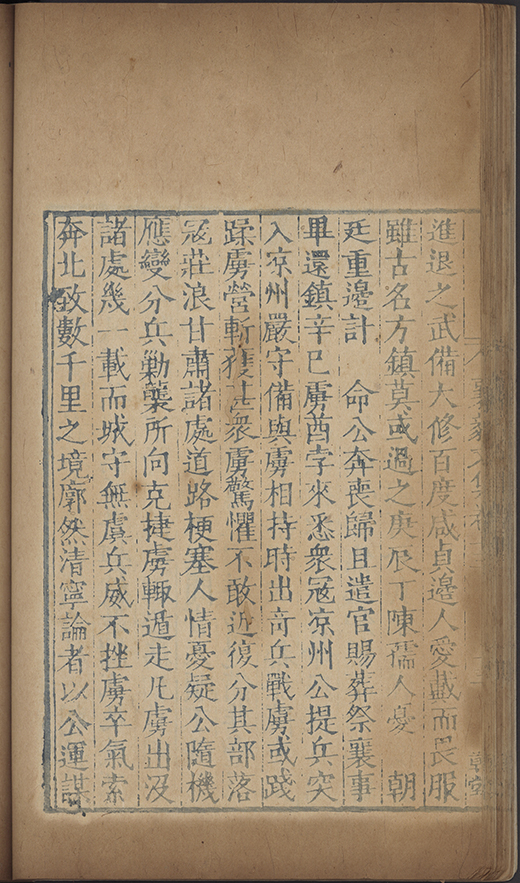 進退之武備大修百度咸貞邊人愛戴而畏服
雖古名方鎮莫或過之庚辰丁陳孺人憂 朝
廷重邊計 命公奔喪歸且遣官賜葬祭襄事
畢還鎮辛巳虜酋孛來悉衆寇凉州公提兵突
入凉州嚴守備與虜相持時出竒兵戰虜或踐
蹂虜營斬獲甚衆虜驚懼不敢近復分其部落
寇莊浪甘肅諸處道路梗塞人情憂疑公隨機
應變分兵勦襲所向克捷虜輙遁走凡虜出没
諸處幾一載而城守無虞兵威不挫虜卒氣索
奔北致數千里之境廓然清寧論者以公運謀